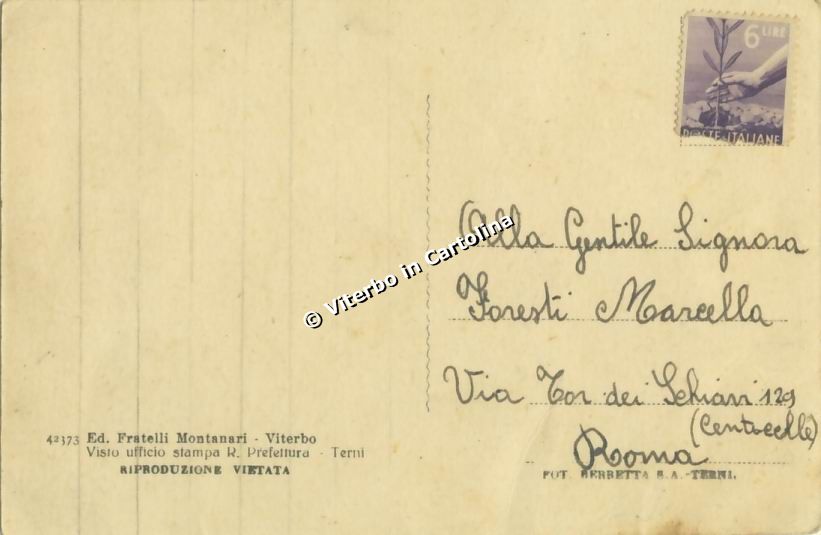 6 LIRE
POSTE ITALIANE
Alla Gentile Signora
Foresti Marcella
Via Tor dei Schiavi 129
(Centocelle)
Roma
© Viterbo in Cartolina
42373 Ed. Fratelli Montanari - Viterbo
Visto ufficio stampa R. Prefettura - Terni
RIPRODUZIONE VIETATA
FOT. BERRETTA S.A.-TERNI.